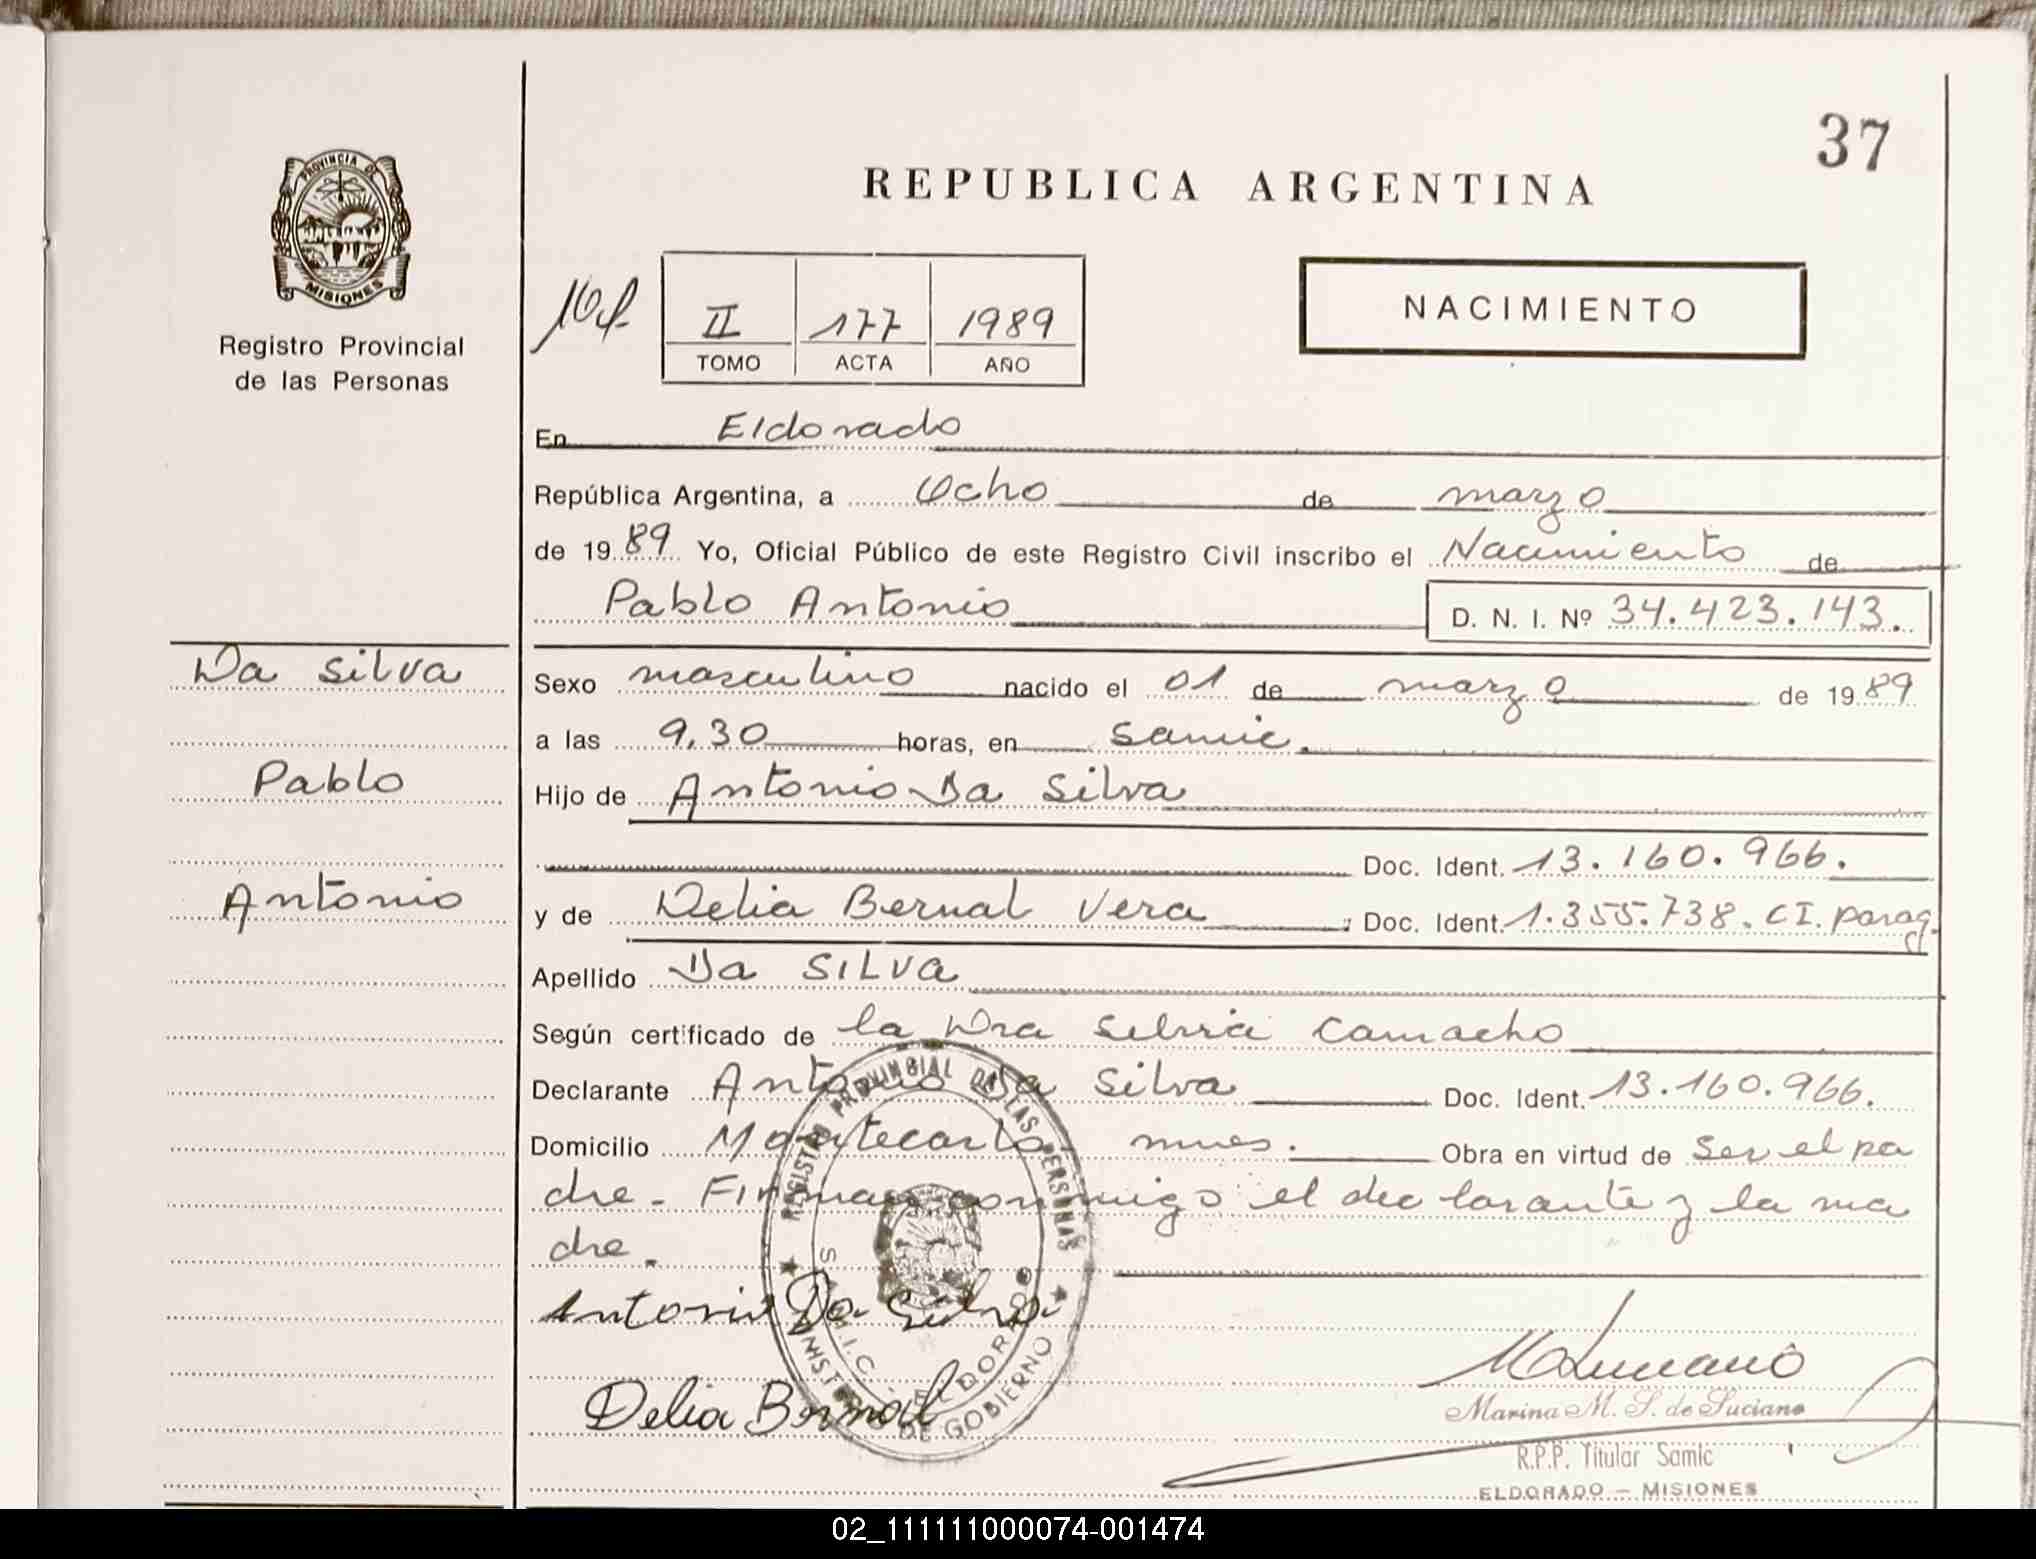 37
PROVINCIA DE
MISIONES
Registro Provincial
de las Personas
REPUBLICA ARGENTINA
II 177 1989
TOMO ACTA AÑO
NACIMIENTO
En Eldorado
República Argentina, a Ocho de marzo
de 1989 Yo, Oficial Público de este Registro Civil inscribo el Nacimiento de
Pablo Antonio D. N. I. Nº 34.423.143.
Da Silva
Pablo
Antonio
Sexo masculino nacido el 01 de marzo de 1989
a las 9,30 horas, en Samic.
Hijo de Antonio Da Silva
Doc. Ident. 13.160.966.
y de Delia Bernal Vera ; Doc. Ident. 1.355.738. CI. parag.
Apellido Da SILVa
Según certificado de la Dra Silvia Camacho
Declarante Antonio Da Silva Doc. Ident. 13.160.966.
Domicilio Montecarlo mnes. Obra en virtud de Ser el pa
dre - Firman conmigo el declarante y la ma
dre.
REGISTRO PROVINSIAL DE LAS PERSONAS
S.A.M.I.C. ELDORADO
MINISTERIO DE GOBIERNO
Antonio Da Silva
Delia Bernal
MLuciano
Marina M. S. de Luciano
R.P.P. Titular Samic
ELDORADO - MISIONES
02_111111000074-001474